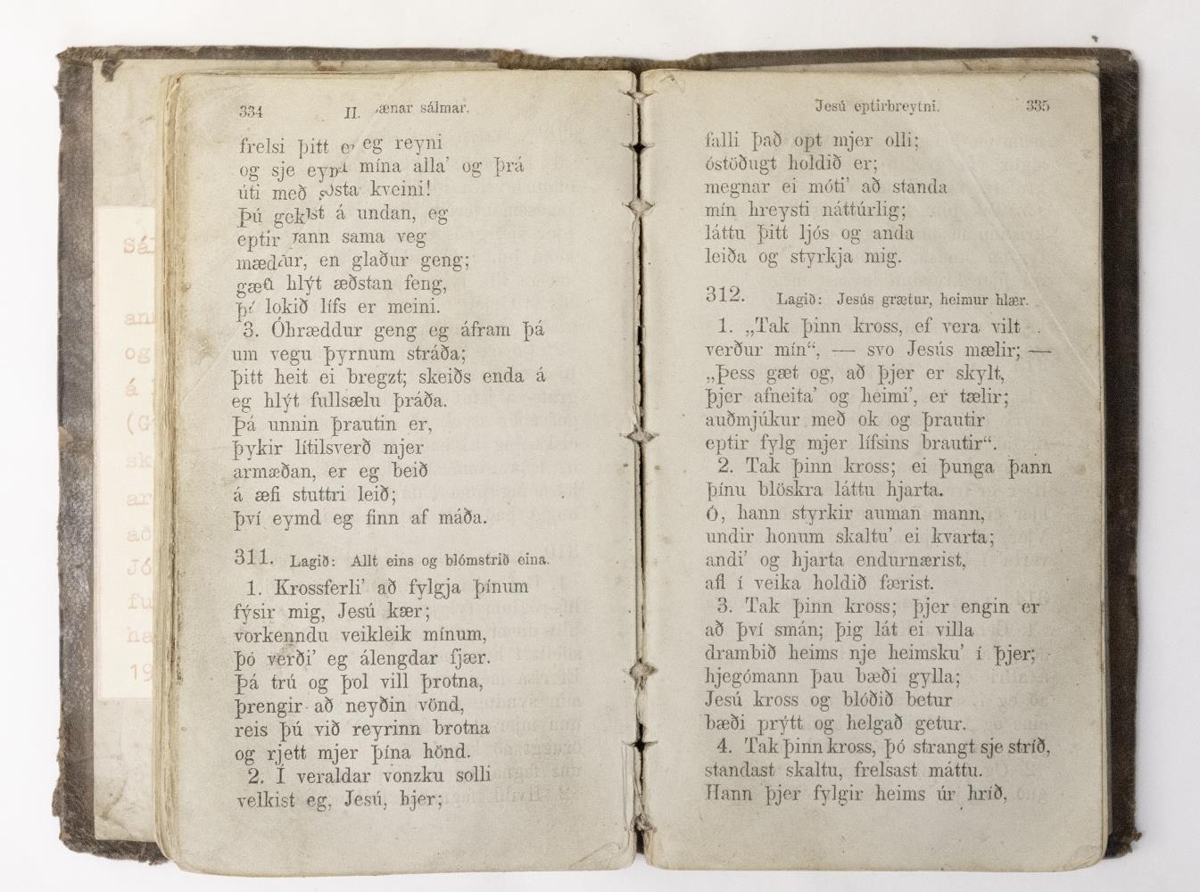 334 II. ænar sálmar.
frelsi þitt eg reyni
og sje eymd mína alla' og þrá
úti með sósta kveini!
Þú gekkst á undan, eg
eptir þann sama veg
mæddur, en glaður geng;
gæfu hlýt æðstan feng,
þá lokið lífs er meini.
3. Óhræddur geng eg áfram þá
um vegu þyrnum stráða;
þitt heit ei bregzt; skeiðs enda á
eg hlýt fullsælu þráða.
Þá unnin þrautin er,
þykir lítilsverð mjer
armæðan, er eg beið
á æfi stuttri leið;
því eymd eg finn af máða.
311. Lagið: Allt eins og blómstrið eina.
1. Krossferli' að fylgja þínum
fýsir mig, Jesú kær;
vorkenndu veikleik mínum,
þó verði' eg álengdar fjær.
Þá trú og þol vill þrotna,
þrengir að neyðin vönd,
reis þú við reyrinn brotna
og rjett mjer þína hönd.
2. Í veraldar vonzku solli
velkist eg, Jesú, hjer;
Jesú eptirbreytni. 335
falli það opt mjer olli;
óstöðugt holdið er;
megnar ei móti' að standa
mín hreysti náttúrlig;
láttu þitt ljós og anda
leiða og styrkja mig.
312. Lagið: Jesús grætur, heimur hlær.
1. „Tak þinn kross, ef vera vilt
verður mín“, — svo Jesús mælir; —
„Þess gæt og, að þjer er skylt,
þjer afneita' og heimi', er tælir;
auðmjúkur með ok og þrautir
eptir fylg mjer lífsins brautir“.
2. Tak þinn kross; ei þunga þann
þínu blöskra láttu hjarta.
Ó, hann styrkir auman mann,
undir honum skaltu' ei kvarta;
andi' og hjarta endurnærist,
afl í veika holdið færist.
3. Tak þinn kross; þjer engin er
að því smán; þig lát ei villa
drambið heims nje heimsku' í þjer;
hjegómann þau bæði gylla;
Jesú kross og blóðið betur
bæði prýtt og helgað getur.
4. Tak þinn kross, þó strangt sje stríð,
standast skaltu, frelsast máttu.
Hann þjer fylgir heims úr hríð,